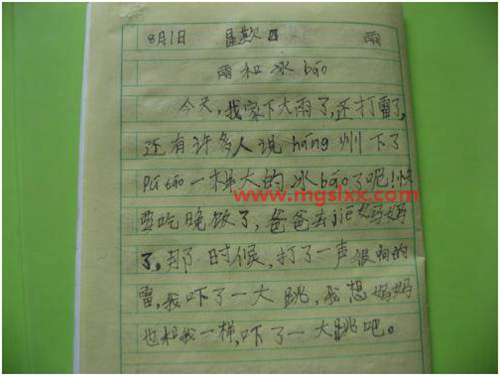 8月1日 星期 雨
雨和冰báo
今天,我家下大雨了,还打雷了,
还有许多人说háng州下了
pú táo一样大的冰báo了呢!快
要吃晚饭了,爸爸去jiē妈妈
了,那时候,打了一声很响的
雷,我吓了一大跳,我想妈妈
也和我一样,吓了一大跳吧。
www.mgslxx.com